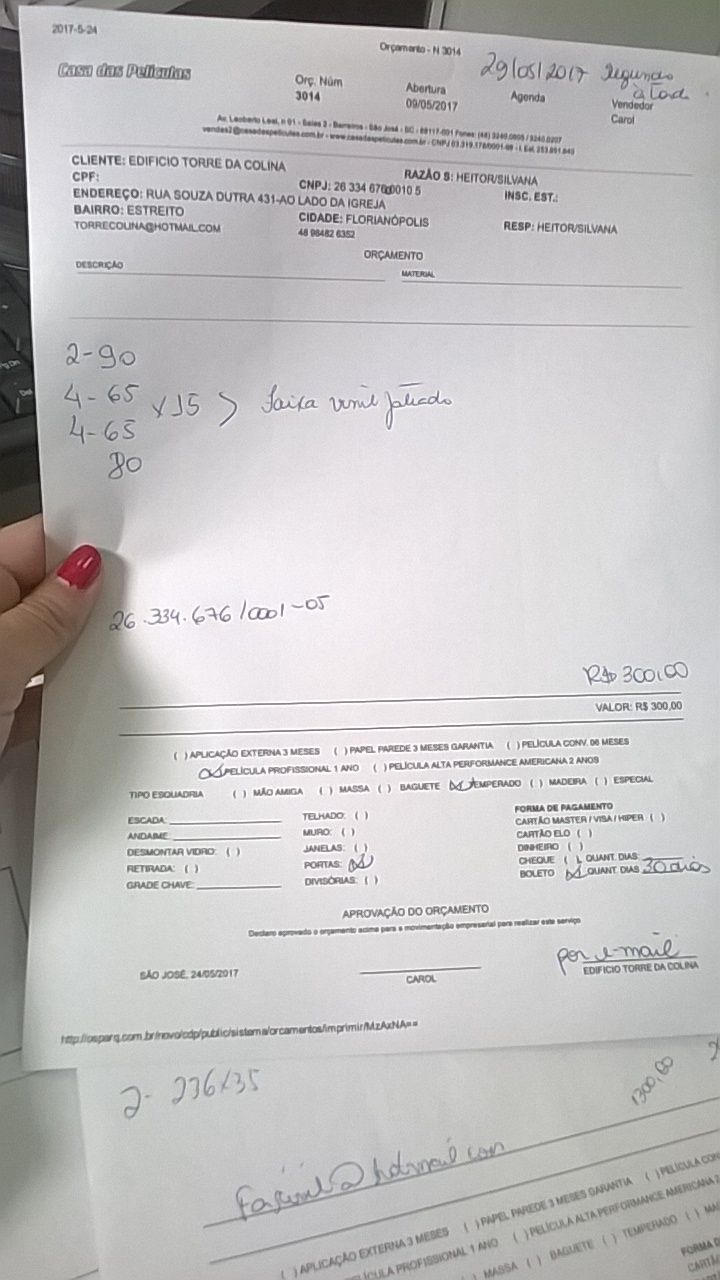 2017-5-24
Orçamento - N 3014
29/05/2017 Segunda
à Tarde
Casa das Películas
Orç. Núm
3014
Abertura
09/05/2017
Agenda
Vendedor
Carol
Av. Leoberto Leal, n 01 - Salas 2 - Barreiros - São José - SC - 88117-001 Fones: (48) 3240.0805 / 3240.0207
vendas2@casadaspeliculas.com.br - www.casadaspeliculas.com.br - CNPJ
CLIENTE: EDIFICIO TORRE DA COLINA
RAZÃO S: HEITOR/SILVANA
CPF:
CNPJ: 26 334 676
INSC. EST.:
ENDEREÇO: RUA SOUZA DUTRA 431-AO LADO DA IGREJA
BAIRRO: ESTREITO
CIDADE: FLORIANÓPOLIS
RESP: HEITOR/SILVANA
TORRECOLINA@HOTMAIL.COM
48 98482 6352
ORÇAMENTO
DESCRIÇÃO
MATERIAL
2-90
4-65
x 15 > faixa vinil jateado
4-65
80
26.334.676/0001-05
R$ 300,00
VALOR: R$ 300,00
( ) APLICAÇÃO EXTERNA 3 MESES ( ) PAPEL PAREDE 3 MESES GARANTIA ( ) PELÍCULA CONV. 06 MESES
PELÍCULA PROFISSIONAL 1 ANO ( ) PELÍCULA ALTA PERFORMANCE AMERICANA 2 ANOS
TIPO ESQUADRIA ( ) MÃO AMIGA ( ) MASSA ( ) BAGUETE (x) TEMPERADO ( ) MADEIRA ( ) ESPECIAL
ESCADA:
TELHADO: ( )
FORMA DE PAGAMENTO
ANDAIME:
MURO: ( )
CARTÃO MASTER / VISA / HIPER ( )
DESMONTAR VIDRO: ( )
JANELAS: ( )
CARTÃO ELO ( )
RETIRADA: ( )
PORTAS: (x)
DINHEIRO ( )
GRADE CHAVE:
DIVISÓRIAS: ( )
CHEQUE ( ), QUANT. DIAS:
BOLETO (x) QUANT. DIAS 30 dias
APROVAÇÃO DO ORÇAMENTO
Declaro aprovado o orçamento acima para a movimentação empresarial para realizar este serviço
SÃO JOSÉ, 24/05/2017
CAROL
por e-mail
EDIFICIO TORRE DA COLINA
http://osparq.com.br/novo/cdp/public/sistema/orcamentos/imprimir/MzAxNA==
2- 236x35
1300,00
@hotmail.com
( ) APLICAÇÃO EXTERNA 3 MESES ( ) PAPEL PAREDE 3 MESES GARANTIA ( ) PELÍCULA CON
PELÍCULA PROFISSIONAL 1 ANO ( ) PELÍCULA ALTA PERFORMANCE AMERICANA 2
MASSA ( ) BAGUETE ( ) TEMPERADO ( ) MA
FORMA D
CARTÃO